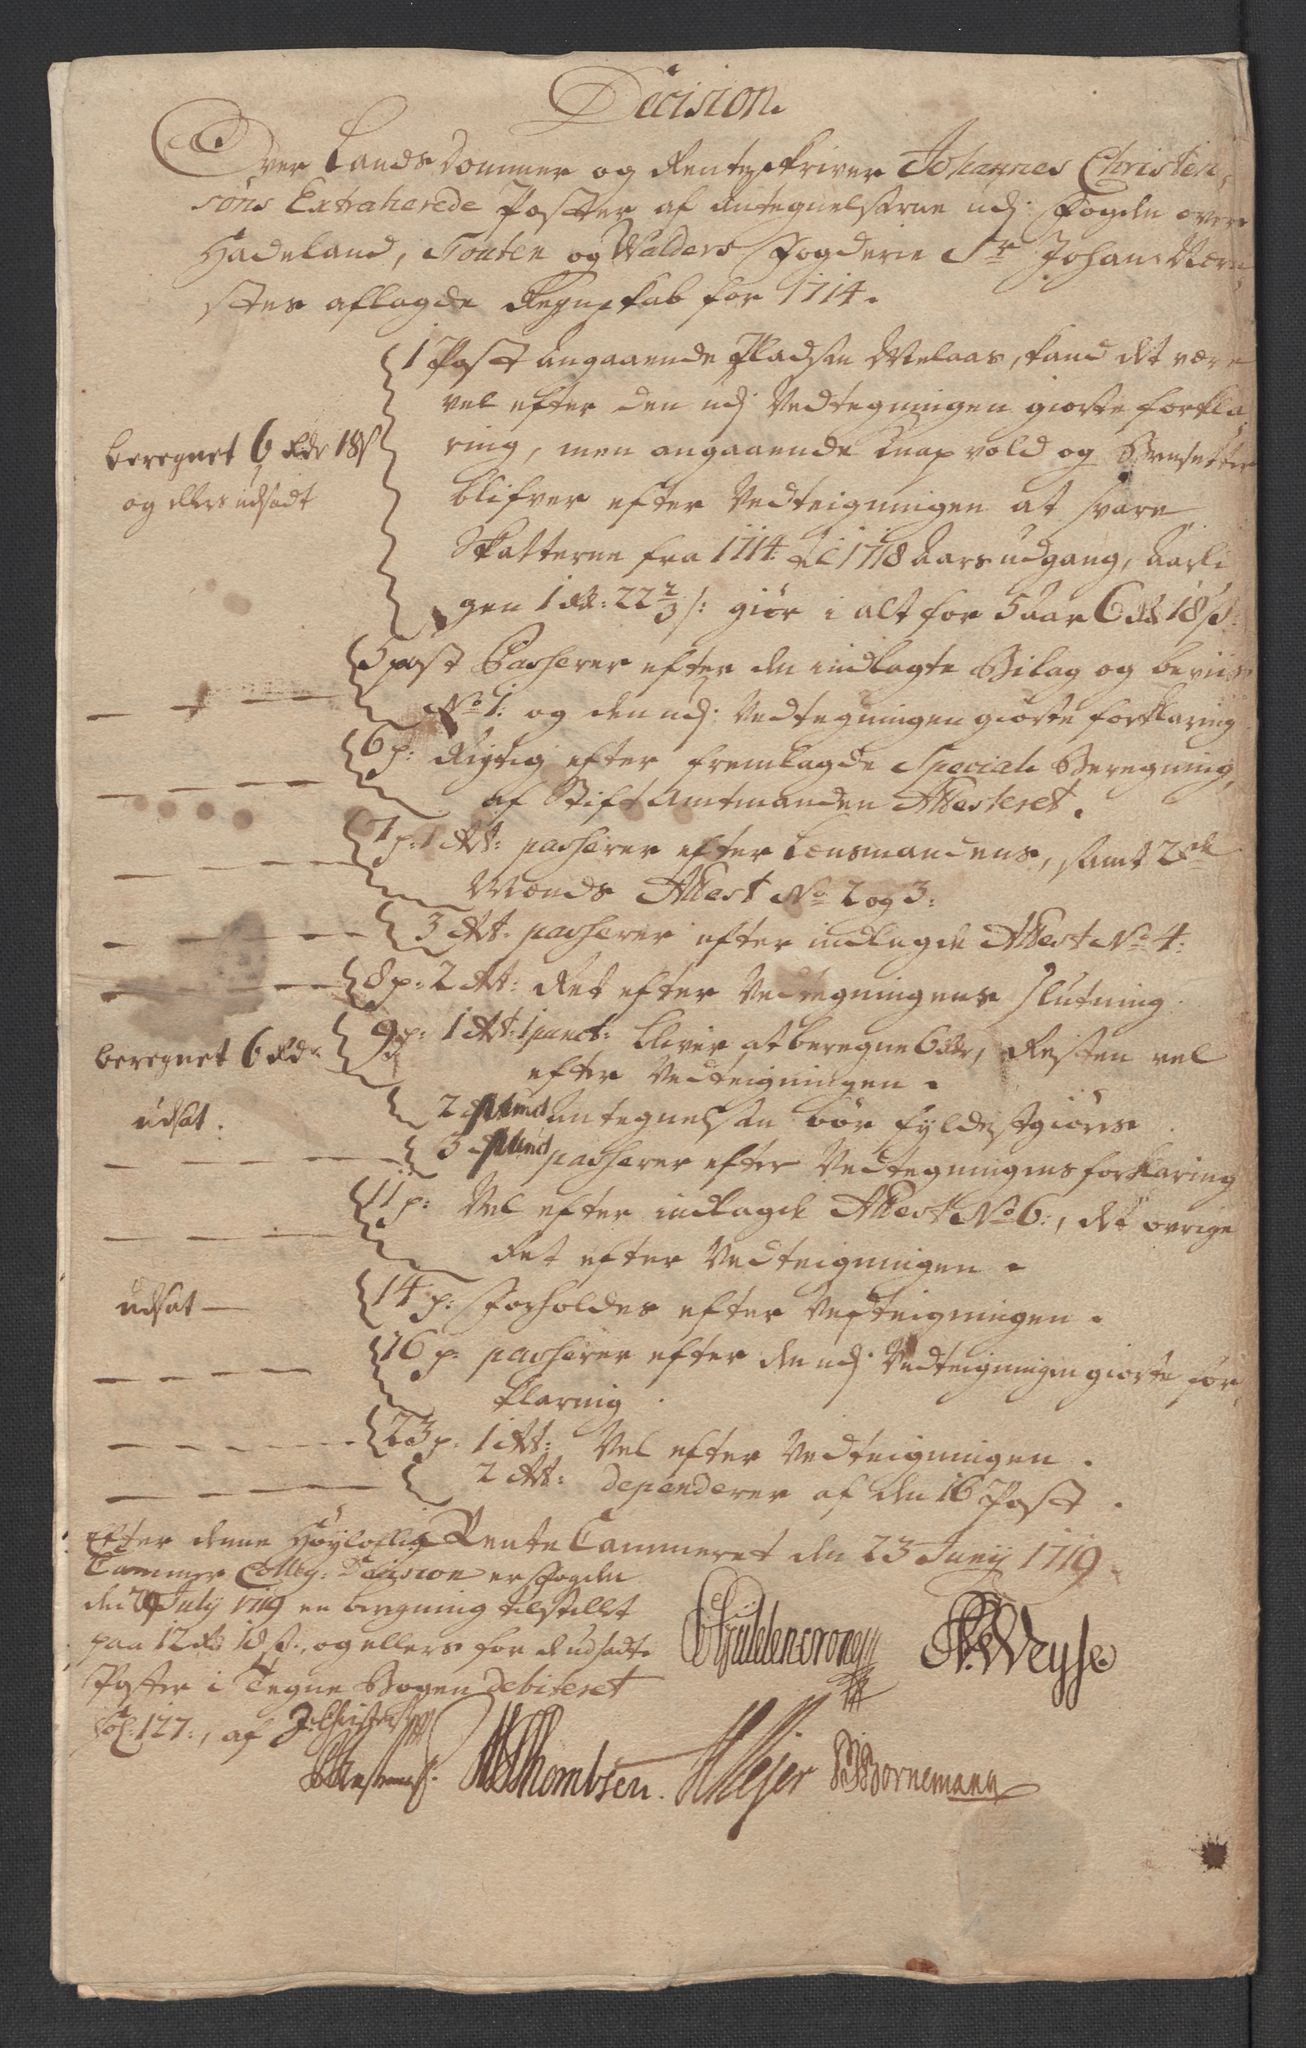 Decision
Over Lands Dommer og Renteskriver Johannes Christen,
søns Extraherede Poster af Antegnelserne udj Fogden over
Hadeland, Tooten og Walders Fogderie Sr Johan
stes aflagde Regnskab for 1714.
1 Post angaaende Pladsen Melaas, fand det være
vel efter den udj Vedtegningen giorte forkla
ring, men angaaende Knapvold og
beregnet 6 Rdr 18 s
og ellers udsadt
blifver efter Vedteigningen at svare
Skatterne fra 1714 til 1718 Aars udgang, aarli
gen 1 Rd: 22 2/3 s: giør i alt for 5 aar 6 Rd 18 s:
5 post Passerer efter den indlagte Bilag og beviis
No 1: og den udj Vedtegningen giorte forklaring
6 p: Rigtig efter fremlagde Speciale Beregning,
af Stift Amtmanden Attesteret.
7 p: 1 Art: passerer efter Lensmandens, samt 2de
Mænds Attest No 2 og 3:
3 Art. passerer efter indlagde Attest No 4:
8 p: 2 Art: Ret efter Vedtegningens slutning.
beregnet 6 Rdr
9 p: 1 Art: 1 punct: bliver at beregne 6 Rdr, Resten vel
efter Vedteigningen.
udsat.
2 punct antegnelsen bør fyldestgiøres.
3 punct passerer efter Vedtegningens forklaring
11 p: Vel efter indlagde Attest No 6:, det øvrige
Ret efter Vedteigningen.
udsat
14 p: Forholdes efter Vedteigningen.
16 p: passerer efter den udj Vedteigningen giorte for,
klaring.
23 p. 1 Art: Vel efter Vedteigningen.
2 Art: dependerer af den 16 Post.
Rente Cammeret den 23 Junij 1719.
Efter denne Høyloflig
Cammer Colleg: Decision er Fogden
den 29 July 1719 en beregning tilstillet
paa 12 Rd 18 s., og ellers for de udsadte
Poster i Tegne Bogen Debiteret
Fol. 127:, af J Christensen
Guldencrone CWeyse
Thombsen. Mejer Bornemann